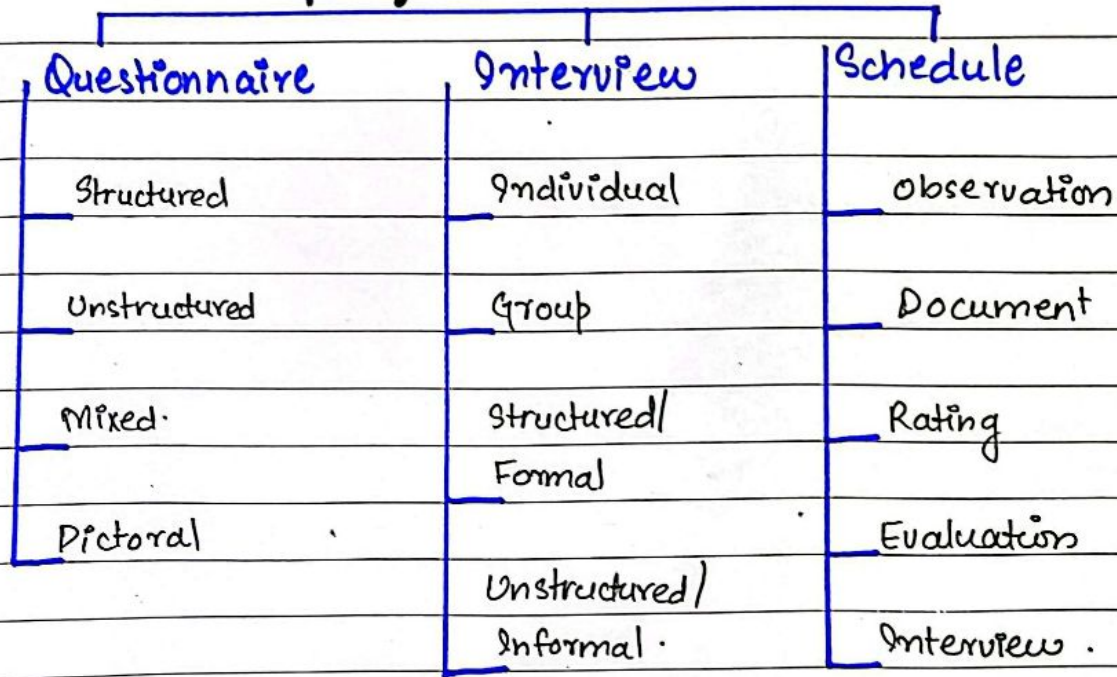 Questionnaire
Structured
Unstructured
Mixed.
Pictoral
Interview
Individual
Group
Structured/
Formal
Unstructured/
Informal.
Schedule
Observation
Document
Rating
Evaluation
Interview.